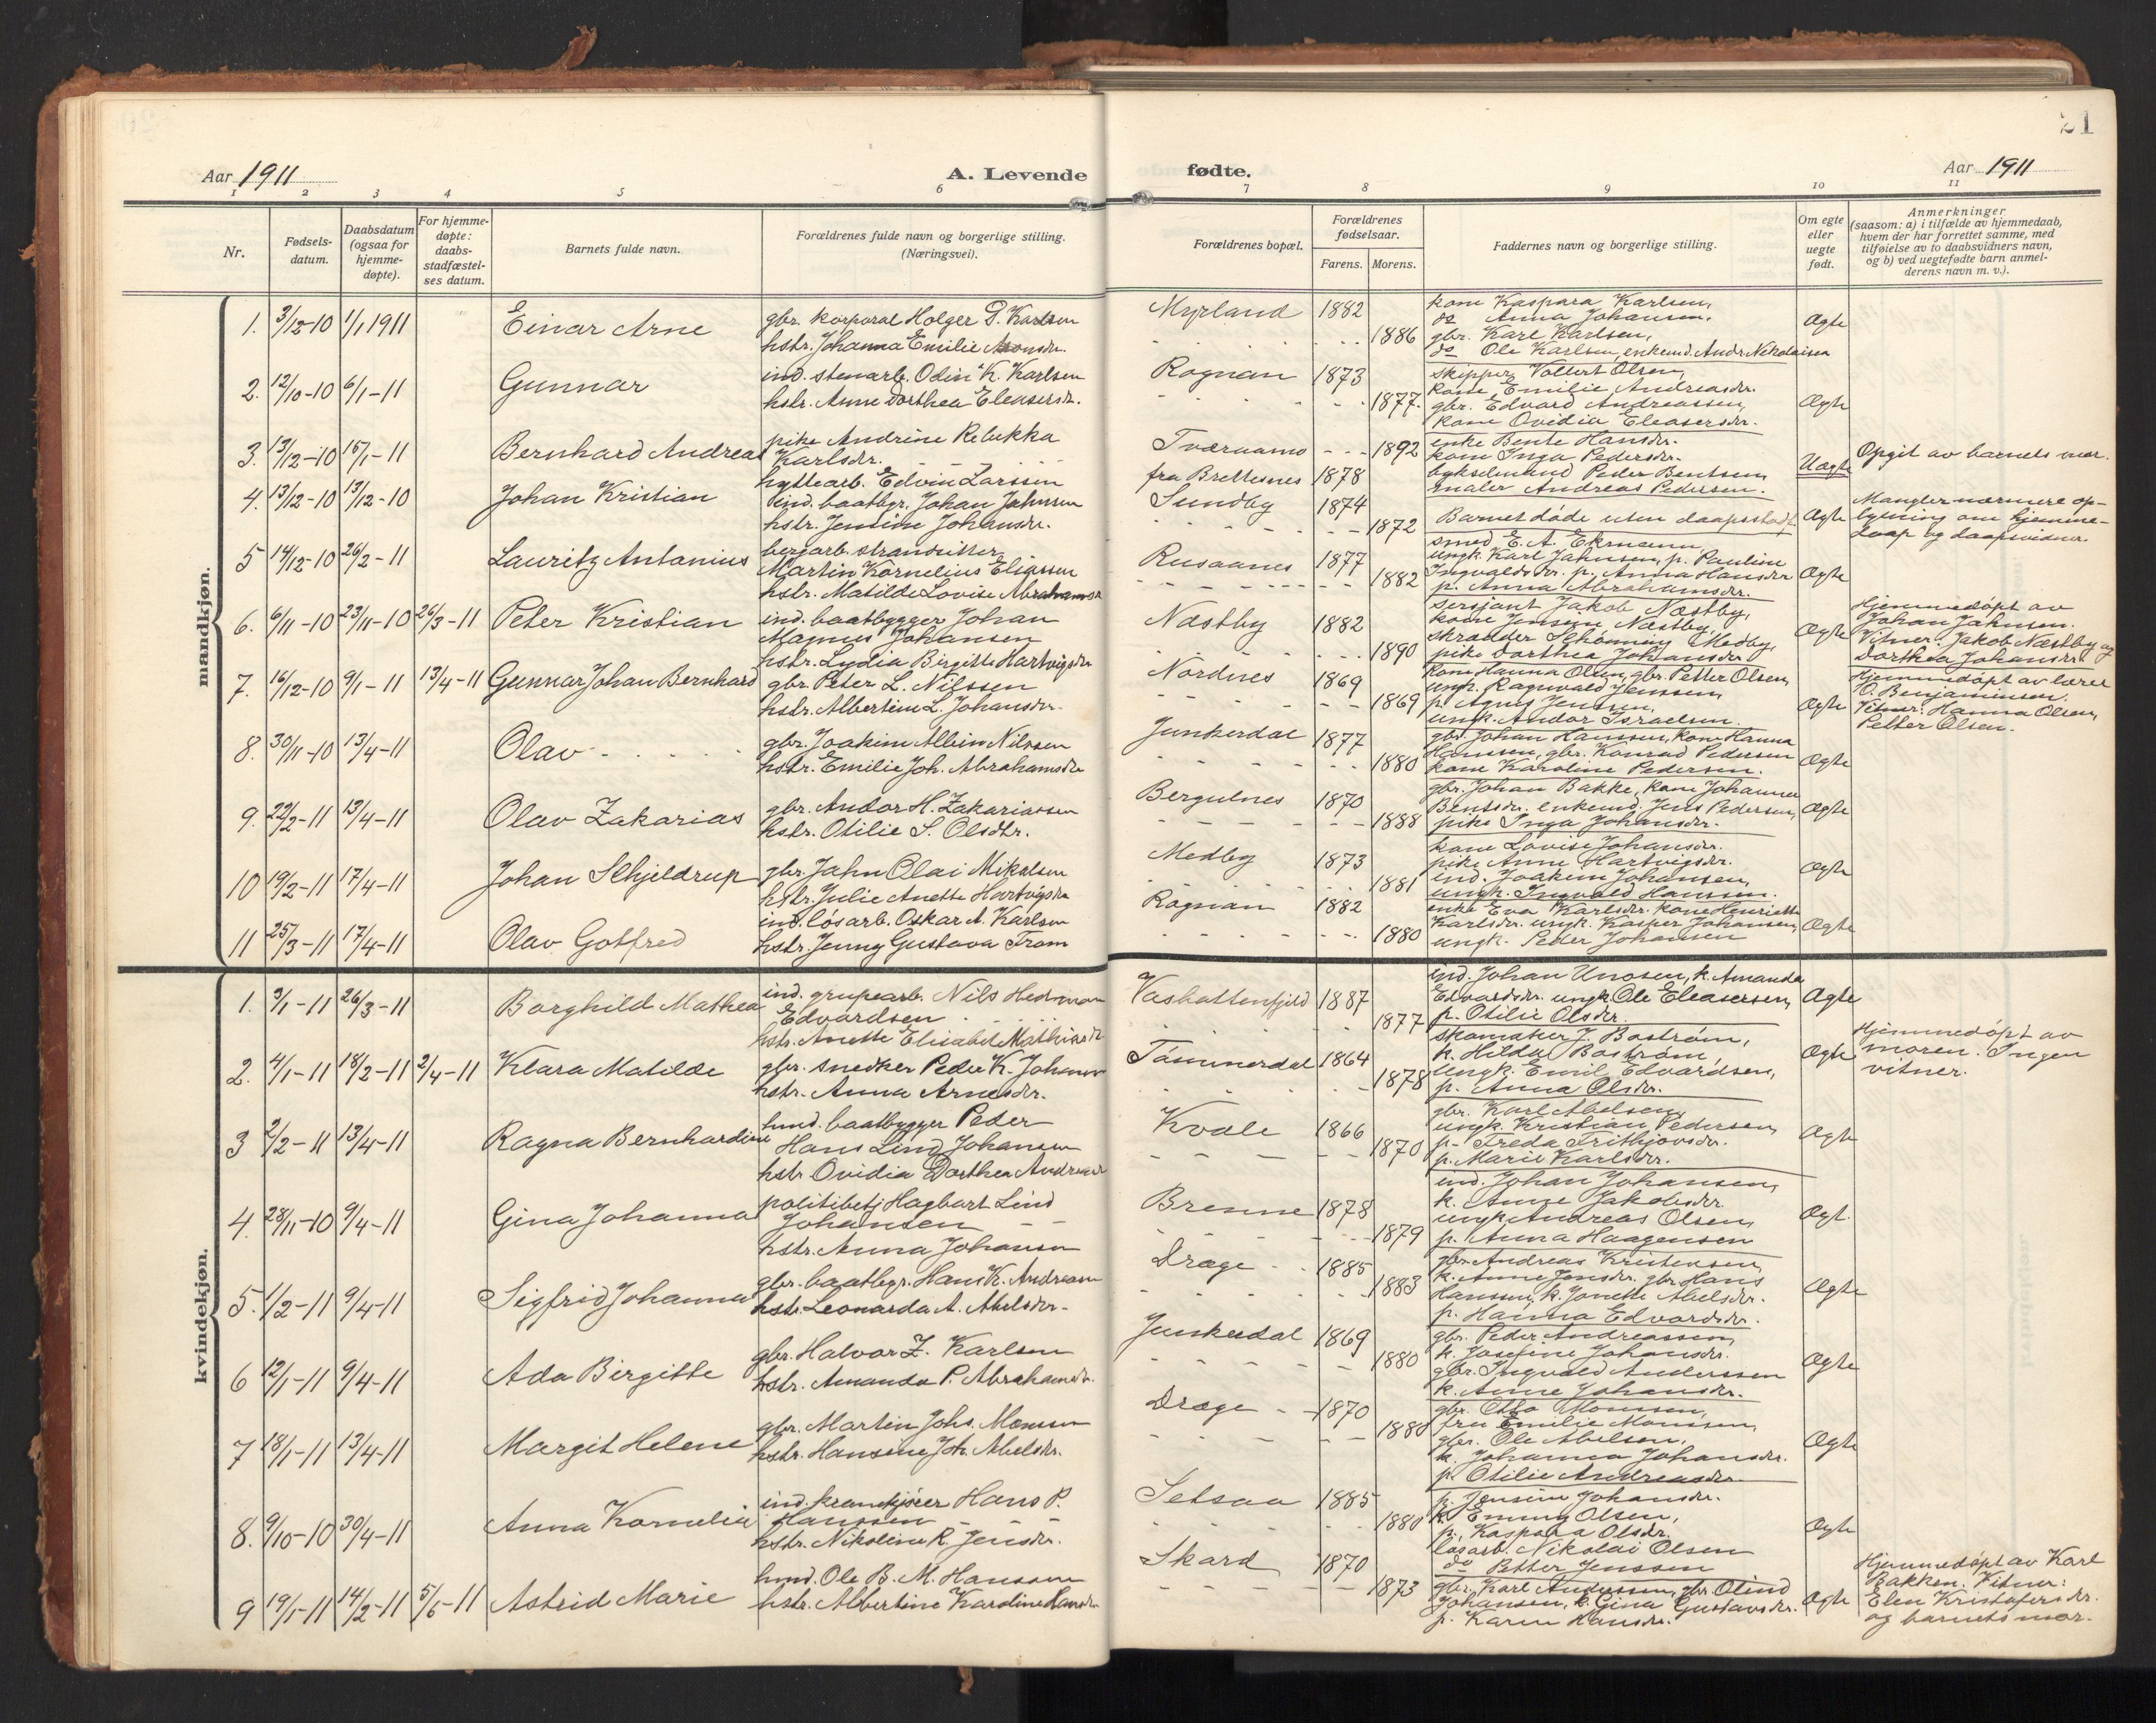 21
Aar 1911
A. Levende
fødte.
Aar 1911
1 2 3 4 5 6 7 8 9 10 11
Nr.
Fødsels-
datum.
Daabsdatum
(ogsaa for
hjemme-
døpte).
For hjemme-
døpte:
daabs-
stadfæstel-
ses datum.
Barnets fulde navn.
Forældrenes fulde navn og borgerlige stilling.
(Næringsvei).
Forældrenes bopæl.
Forældrenes
fødselsaar.
Farens. Morens.
Faddernes navn og borgerlige stilling.
Om egte
eller
uegte
født.
Anmerkninger
(saasom: a) i tilfælde av hjemmedaab,
hvem der har forrettet samme, med
tilføielse av to daabsvidners navn,
og b) ved uegtefødte barn anmel-
derens navn m. v.).
mandkjøn.
1. 3/12-10 1/1 1911 Einar Arne
gbr. korporal Holger P. Karlsen
hstr. Johanna Emilie
Myrland 1882
1886
kone Kaspara Karlsen,
do Anna Johansen.
gbr. Karl Karlsen,
do Ole Karlsen, enkemd. Andr. Nikolaisen
Ægte
2. 12/10-10 6/1-11 Gunnar
ind. stenarb. Odin K. Karlsen
hstr. Anne Dorthea Eleasersdr.
Rognan 1873
1877.
skipper Vollert Olsen,
kone Emilie Andreasdr.
gbr. Edvard Andreassen,
kone Ovidia Eleasersdr.
Ægte
3. 13/12-10 15/1-11 Bernhard Andreas
pike Andrine Rebekka
Karlsdr.
hyttearb. Edvin Larssen
Tværaamo 1892
fra Brettesnes 1878
enke Bente Hansdr.
kone Inga Pedersdr.
bykselmand Peder Bentsen,
maler Andreas Pedersen.
Uægte
Opgit av barnets mor.
4. 13/12-10 13/12-10 Johan Kristian
ind. baatbgr. Johan Jahnsen
hstr. Jensine Johansdr.
Sundby 1874
1872
Barnet døde uten daapsstadf.
Ægte
Mangler nærmere op-
lysning om hjemme-
daap og daapsvidner.
5 14/12-10 26/2-11 Lauritz Antonius
bergarb. strandsitter
Martin Kornelius Eliassen
hstr. Matilde Lovise Abrahamsdr
Rusaanes 1877
1882
smed E. A. Ekmann
ungk. Karl Jahnsen, p. Pauline
Ingvaldsdr. p. Anna Hansdr
p. Anna Abrahamsdr.
Ægte
6. 6/11-10 23/11-10 26/3-11 Peter Kristian
ind. baatbygger Johan
Magnus Johansen
hstr. Lydia Birgitte Hartvigsdr
Næstby 1882
1890
sersjant Jakob Næstby,
kone Jensine Næstby,
skrædder Schønning Medby,
pike Dorthea Johansdr.
Ægte
Hjemmedøpt av
Johan Jahnsen.
Vitner: Jakob Næstby og
Dorthea Johansdr.
7. 16/12-10 9/1-11 13/4-11 Gunnar Johan Bernhard
gbr. Peter L. Nilssen
hstr. Albertine L. Johansdr.
Nordnes 1869
1869
kone Hanna Olsen, gbr. Petter Olsen,
ungk. Ragnvald Jenssen,
p. Agnes Jenssen,
ungk. Andor Israelsen.
Ægte
Hjemmedøpt av lærer
O. Benjaminsen.
Vitner: Hanna Olsen,
Petter Olsen.
8. 30/11-10 13/4-11 Olav
gbr. Joakim Albin Nilssen
hstr. Emilie Joh. Abrahamsdr
Junkerdal 1877
1880
gbr. Johan Hanssen, kone Hanna
Hanssen, gbr. Konrad Pedersen
kone Karoline Pedersen.
Ægte
9. 22/2-11 13/4-11 Olav Zakarias
gbr. Andor H. Zakariassen
hstr. Otilie S. Olsdtr.
Bergulnes 1870
1888
gbr. Johan Bakke, kone Johanna
Bentsdr. enkemd. Jens Pedersen,
pike Inga Johansdr.
Ægte
10 19/2-11 17/4-11 Johan Schjeldrup
gbr. Jahn Olai Mikalsen
hstr. Julie Anette Hartvigsdr
Medby 1873
1881
kone Lovise Johansdr.
pike Anne Hartvigsdr.
ind. Joakim Johansen,
ungk. Ingvald Hansen.
Ægte
11 25/3-11 17/4-11 Olav Gotfred
ind. løsarb. Oskar A. Karlsen
hstr. Jenny Gustava Trom
Rognan 1882
1880
enke Eva Karlsdr. kone Henriette
Karlsdr. ungk. Kasper Johansen,
ungk. Peder Johansen
Ægte
kvindekjøn.
1. 3/1-11 26/3-11 Borghild Mathea
ind. grupearb. Nils Hedman
Edvardsen
hstr. Anette Elisabet Mathisdr
Vasbottenfjeld 1887
1877
ind. Johan Unosen, k. Amanda
Edvardsdr. ungk. Ole Eleasersen,
p. Otilie Olsdr.
Ægte
2. 4/1-11 18/2-11 2/4-11 Klara Matilde
gbr. snedker Peder K. Johansen
hstr. Anna Arnesdr.
Tømmerdal 1864
1878
skomaker J. Bostrøm,
k. Hilda Bostrøm,
ungk. Emil Edvardsen,
p. Anna Olsdr.
Ægte
Hjemmedøpt av
moren. Ingen
vitner.
3 2/2-11 13/4-11 Ragna Bernhardine
hmd. baatbygger Peder
Hans Lind Johansen
hstr. Ovidia Dorthea Andreasdr
Kvale 1866
1870
gbr. Karl Abelsen,
ungk. Kristian Pedersen,
p. Freda Frithjovsdr.
p. Marie Karlsdr.
Ægte
4. 28/11-10 9/4-11 Gina Johanna
politibetj Hagbart Lind
Johansen
hstr. Anna Johansen
Brenne 1878
1879
ind. Johan Johansen,
k. Anne Jakobsdr.
ungk. Andreas Olsen,
p. Anna Haagensen
Ægt.
5. 1/2-11 9/4-11 Sigfrid Johanna
gbr. baatbgr. Hans K. Andreasen
hstr. Leonarda A. Abelsdr.
Drage 1885
1883
gbr. Andreas Kristensen,
k. Anne Jonsdr. gbr. Hans
Hanssen, k. Jonette Abelsdr.
p. Hanna Edvardsdr.
Ægte
6 12/1-11 9/4-11 Ada Birgitte
gbr. Halvor Z. Karlsen
hstr. Amanda P. Abrahamsdr.
Junkerdal 1869
1880
gbr. Peder Andreassen,
k. Josefine Johansdr.
gbr. Ingvald Anderssen
k. Anne Johansdr.
Ægte
7 18/1-11 13/4-11 Margit Helene
gbr. Martin Johs. Monsen
hstr. Hansine Joh. Abelsdr.
Drage 1870
1880
gbr. Otto Monsen,
fru Emilie Monsen,
gbr. Ole Abelsen,
k. Johanna Johansdr.
p. Otilie Andreasdr.
Ægte
8. 9/10-10 30/4-11 Anna Kornelia
ind. krankjører Hans P.
Hanssen
hstr. Nikoline R. Jensdr.
Setsaa 1885
1880
p. Jensine Johansdr.
k. Emmy Olsen,
p. Kaspara Olsdr.
løsarb. Nikolai Olsen
do Petter Jenssen
Ægte
9 19/1-11 14/2-11 5/6-11 Astrid Marie
hmd. Ole B. M. Hanssen
hstr. Albertine Kardine Hansdr.
Skard 1870
1873
gbr. Karl Anderssen, gbr. Olind
Johansen, k. Gina Gustavsdr.
p. Karen Hansdr.
Ægte
Hjemmedøpt av Karl
Bakken. Vitner:
Elen Kristofersdr.
og barnets mor.